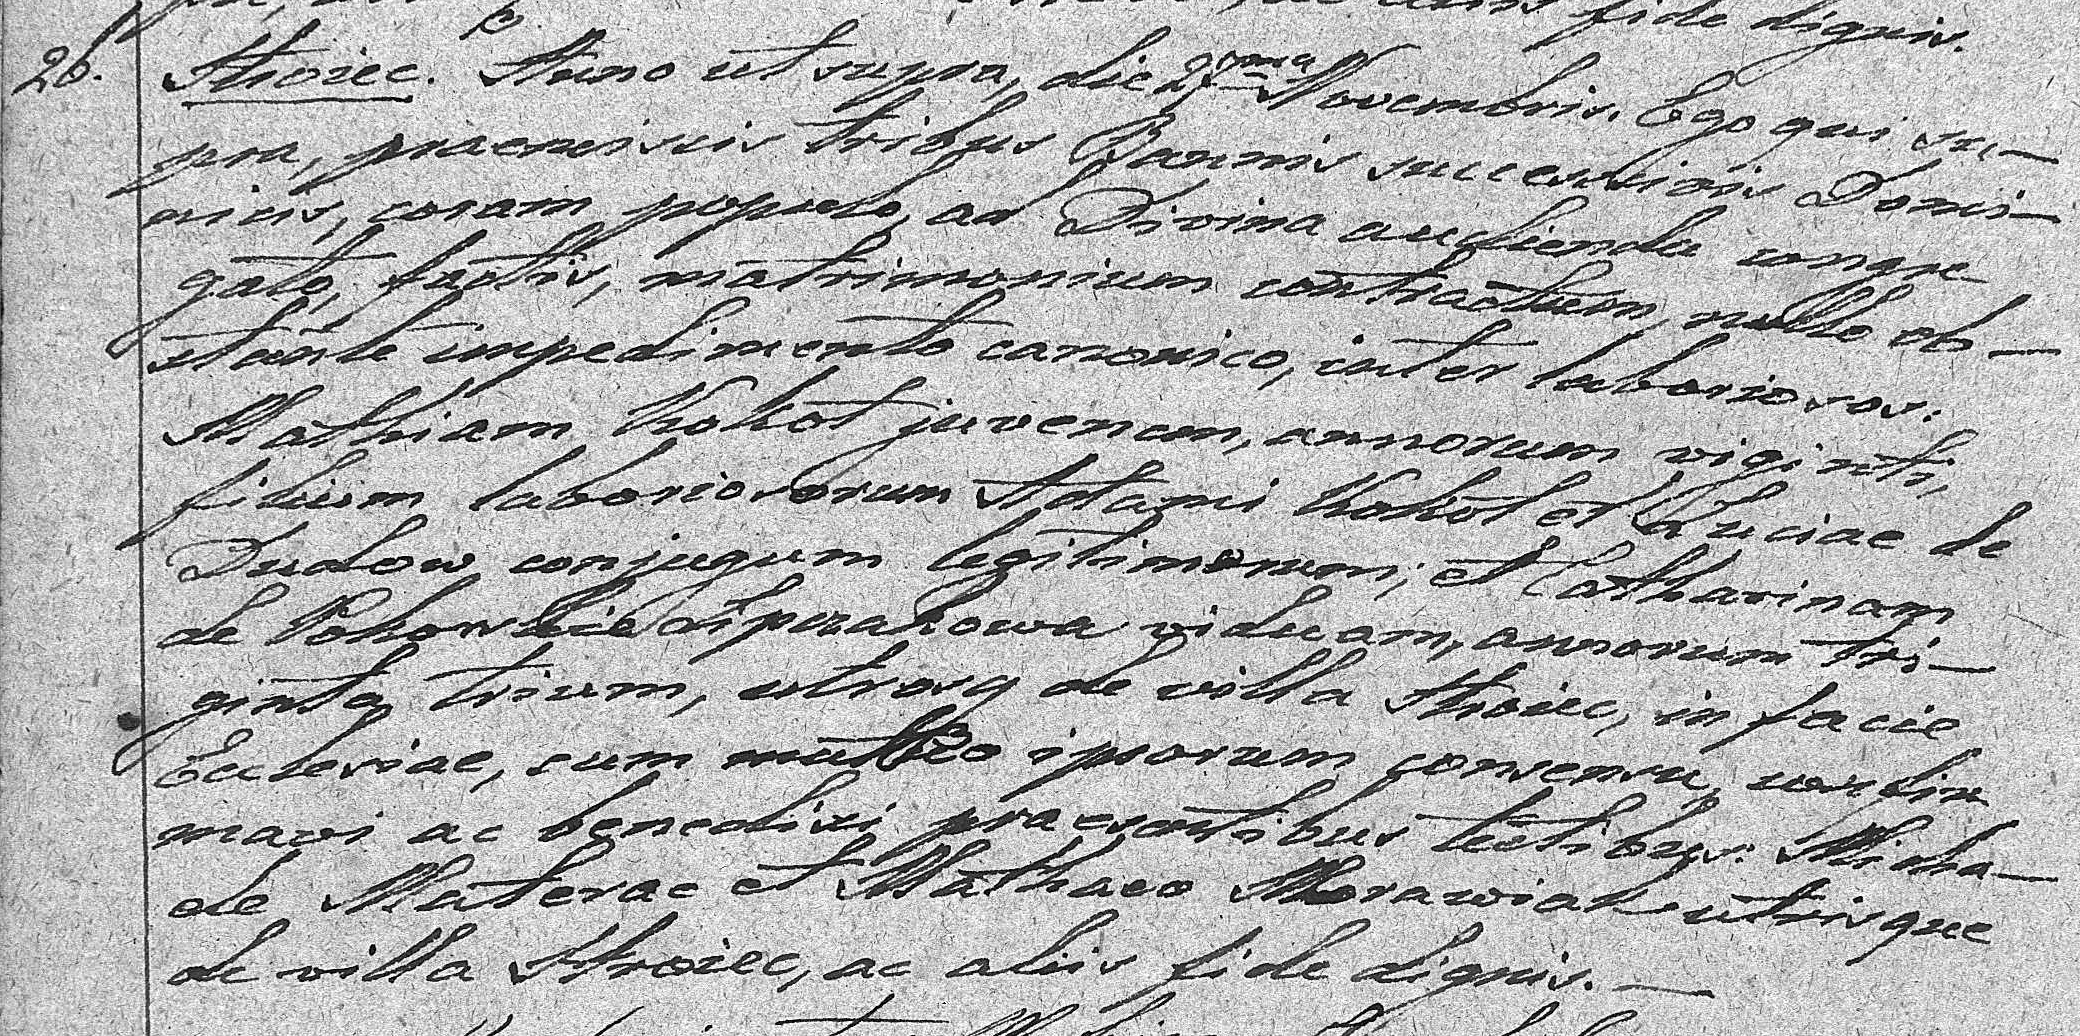 fide dignis.
26. Stroiec. Anno ut supra, die 27ma Novembris. Ego qui su-
pra, praemissis tribus Bannis successivis Domi-
nicis, coram populo, ad Divina audienda congre
gato, factis, matrimonium contractum, nullo ob-
stante impedimento canonico, inter laboriosos.
Mathiam Kokot juvenem, annorum viginti,
filium laboriosorum Adami Kokot et Luciae de
Dudow conjugum legitimorum; et Catharinam
de viduam, annorum tri-
ginta trium, utrosq de villa Stroiec, in facie
Ecclesiae, cum mutuo ipsorum consensu, confir
mavi ac benedixi praesentibus testibus: Micha-
ele Materac et Mathaeo Morawiak utrisque
de villa Stroiec, ac aliis fide dignis. —